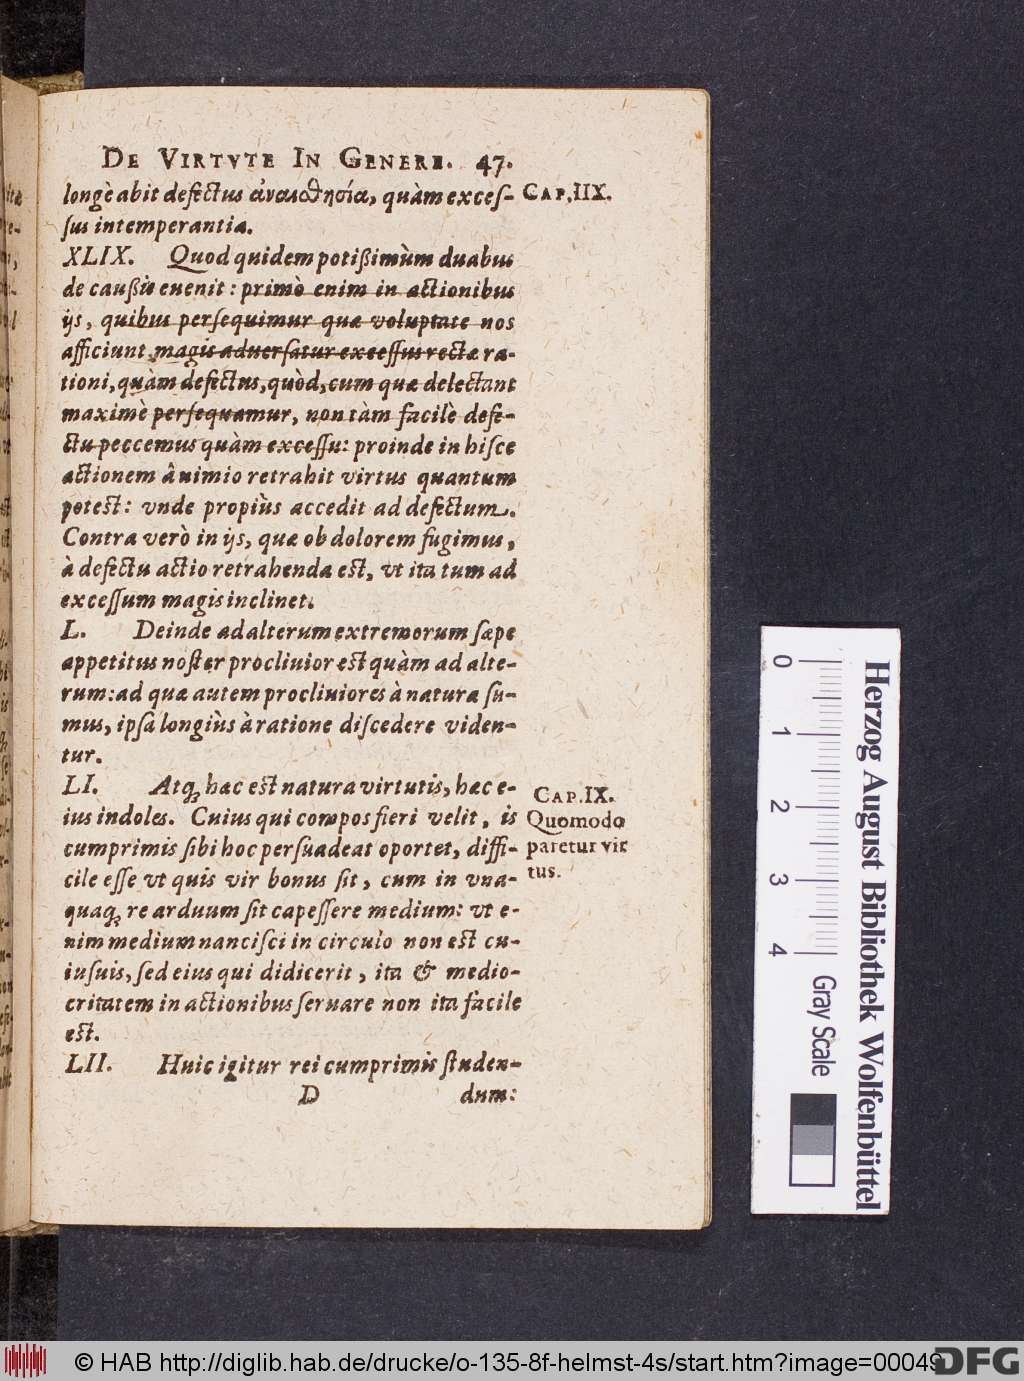 DE VIRTVTE IN GENERE. 47.
longè abit defectus ἀναισθησία, quàm exces-
sus intemperantia.
CAP.IIX.
XLIX. Quod quidem potißimùm duabus
de caußis euenit: primò enim in actionibus
ijs, quibus persequimur quæ voluptate nos
afficiunt magis aduersatur excessus rectæ ra-
tioni, quàm defectus, quòd, cum quæ delectant
maximè persequamur, non tàm facilè defe-
ctu peccemus quàm excessu: proinde in hisce
actionem â nimio retrahit virtus quantum
potest: vnde propiùs accedit ad defectum.
Contra verò in ijs, quæ ob dolorem fugimus,
à defectu actio retrahenda est, vt ita tum ad
excessum magis inclinet.
L. Deinde ad alterum extremorum sæpe
appetitus noster procliuior est quàm ad alte-
rum: ad quæ autem procliuiores à natura su-
mus, ipsa longiùs à ratione discedere viden-
tur.
LI. Atq; hæc est natura virtutis, hæc e-
ius indoles. Cuius qui compos fieri velit, is
cumprimis sibi hoc persuadeat oportet, diffi-
cile esse vt quis vir bonus sit, cum in vna-
quaq; re arduum sit capessere medium: vt e-
nim medium nancisci in circulo non est cu-
iusuis, sed eius qui didicerit, ita & medio-
critatem in actionibus seruare non ita facile
est.
CAP.IX.
Quomodo
paretur vir
tus.
LII. Huic igitur rei cumprimis studen-
D dum:
0 1 2 3 4
Gray Scale
Herzog August Bibliothek Wolfenbüttel
© HAB http://diglib.hab.de/drucke/o-135-8f-helmst-4s/start.htm?image=00049
DFG